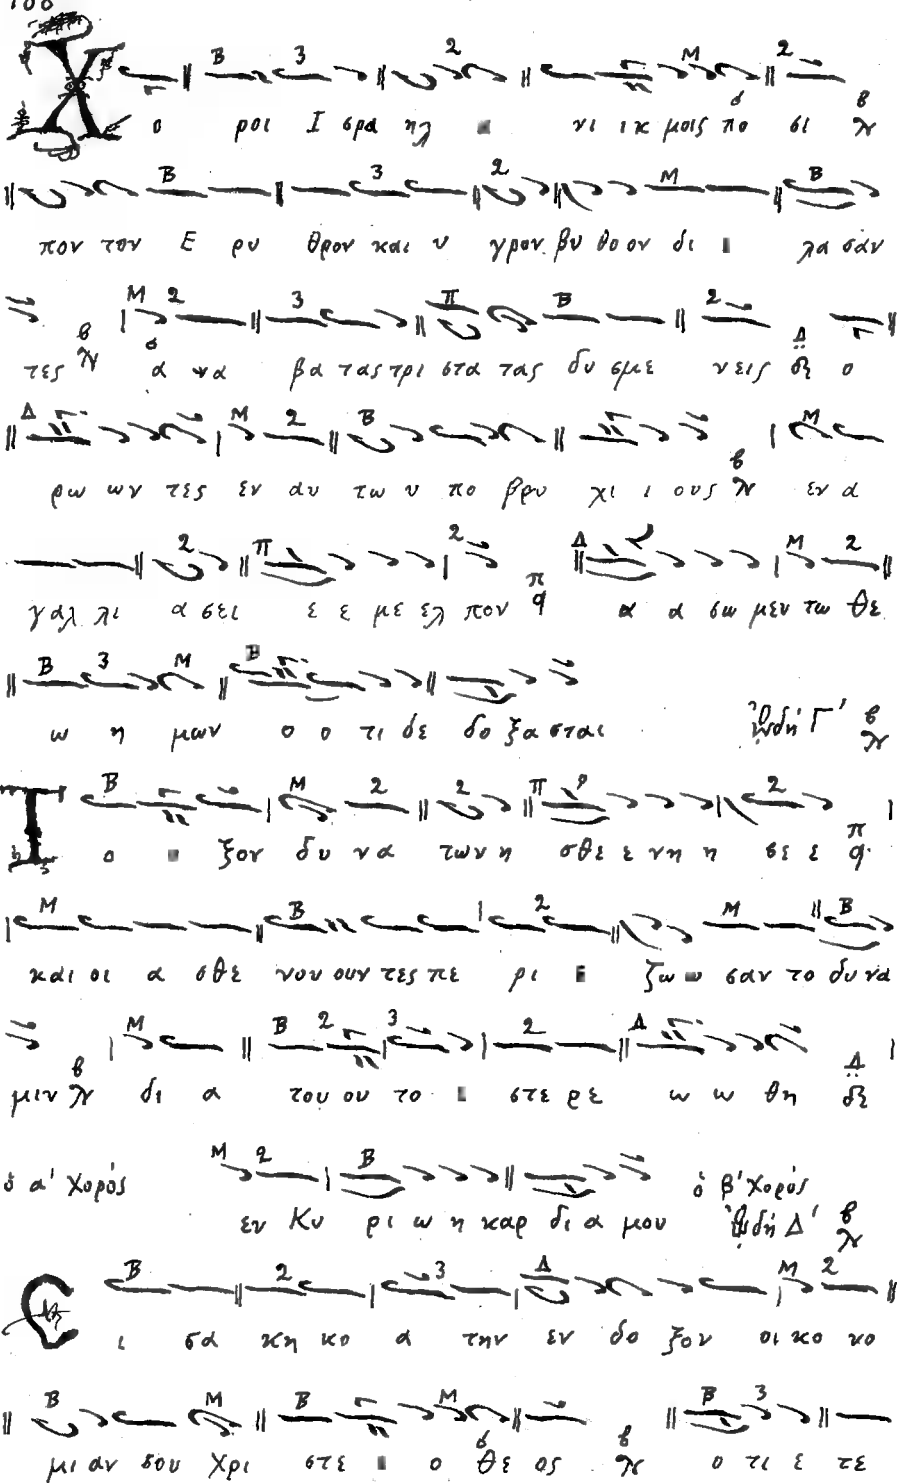 Χο ροι Ι σρα ηλ νι ικ μοις πο σι
πον τον Ε ρυ θρον και υ γρον βυ θο ον δι λα σάν
τες α να βα τας τρι στα τας δυ σμε νεις ο
ρω ων τες εν αυ τω υ πο βρυ χι ι ους εν α
γαλ λι α σει ε ε με ελ πον α α σω μεν τω θε
ω η μων ο ο τι δε δο ξα σται ᾠδή Γ'
Το ξον δυ να των η σθε ε νη η σε ε
και οι α σθε νου ουν τες πε ρι ε ζω ω σαν το δυ να
μιν δι α του ου το στε ρε ω ω θη
ὁ α' χορός εν Κυ ρι ω η καρ δι α μου ὁ β' χορός
ᾠδή Δ'
Ει σα κη κο α την εν δο ξον οι κο νο
μι αν σου Χρι στε ο θε ος ο τι ε τε